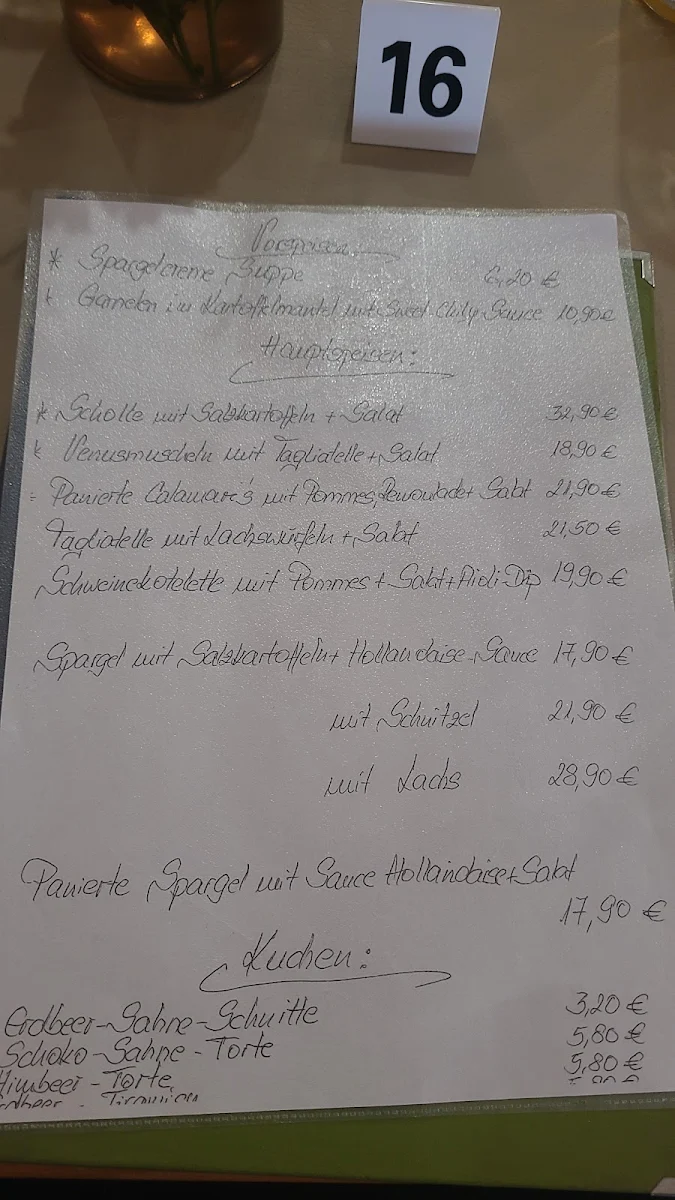 16
Vorspeisen
* Spargelcreme Suppe 6,20 €
* Garnelen im Kartoffelmantel mit Sweet-Chily-Sauce 10,90 €
Hauptspeisen:
* Scholle mit Salzkartoffeln + Salat 32,90 €
* Venusmuscheln mit Tagliatelle + Salat 18,90 €
Panierte Calamari's mit Pommes, Remoulade + Salat 21,90 €
Tagliatelle mit Lachswürfeln + Salat 21,50 €
Schweinekotelette mit Pommes + Salat + Aioli-Dip 19,90 €
Spargel mit Salzkartoffeln + Hollandaise-Sauce 17,90 €
mit Schnitzel 21,90 €
mit Lachs 28,90 €
Panierte Spargel mit Sauce Hollandaise + Salat
17,90 €
Kuchen:
Erdbeer-Sahne-Schnitte 3,20 €
Schoko-Sahne-Torte 5,80 €
Himbeer-Torte 5,80 €
Erdbeer - Tiramisu